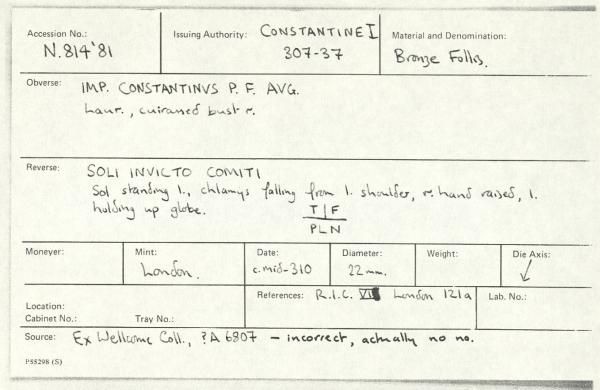 Accession No.: N.814'81
Issuing Authority: CONSTANTINE I
307-37
Material and Denomination:
Bronze Follis.
Obverse: IMP. CONSTANTINVS P. F. AVG.
Laur., cuirassed bust r.
Reverse: SOLI INVICTO COMITI
Sol standing l., chlamys falling from l. shoulder, r. hand raised, l.
holding up globe. T | F
PLN
Moneyer:
Mint: London.
Date: c. mid-310
Diameter: 22 mm.
Weight:
Die Axis: ↙
Location:
Cabinet No.: Tray No.:
References: R.I.C. VI London 121a
Lab. No.:
Source: Ex Wellcome Coll., ?A 6807 – incorrect, actually no no.
P55298 (S)